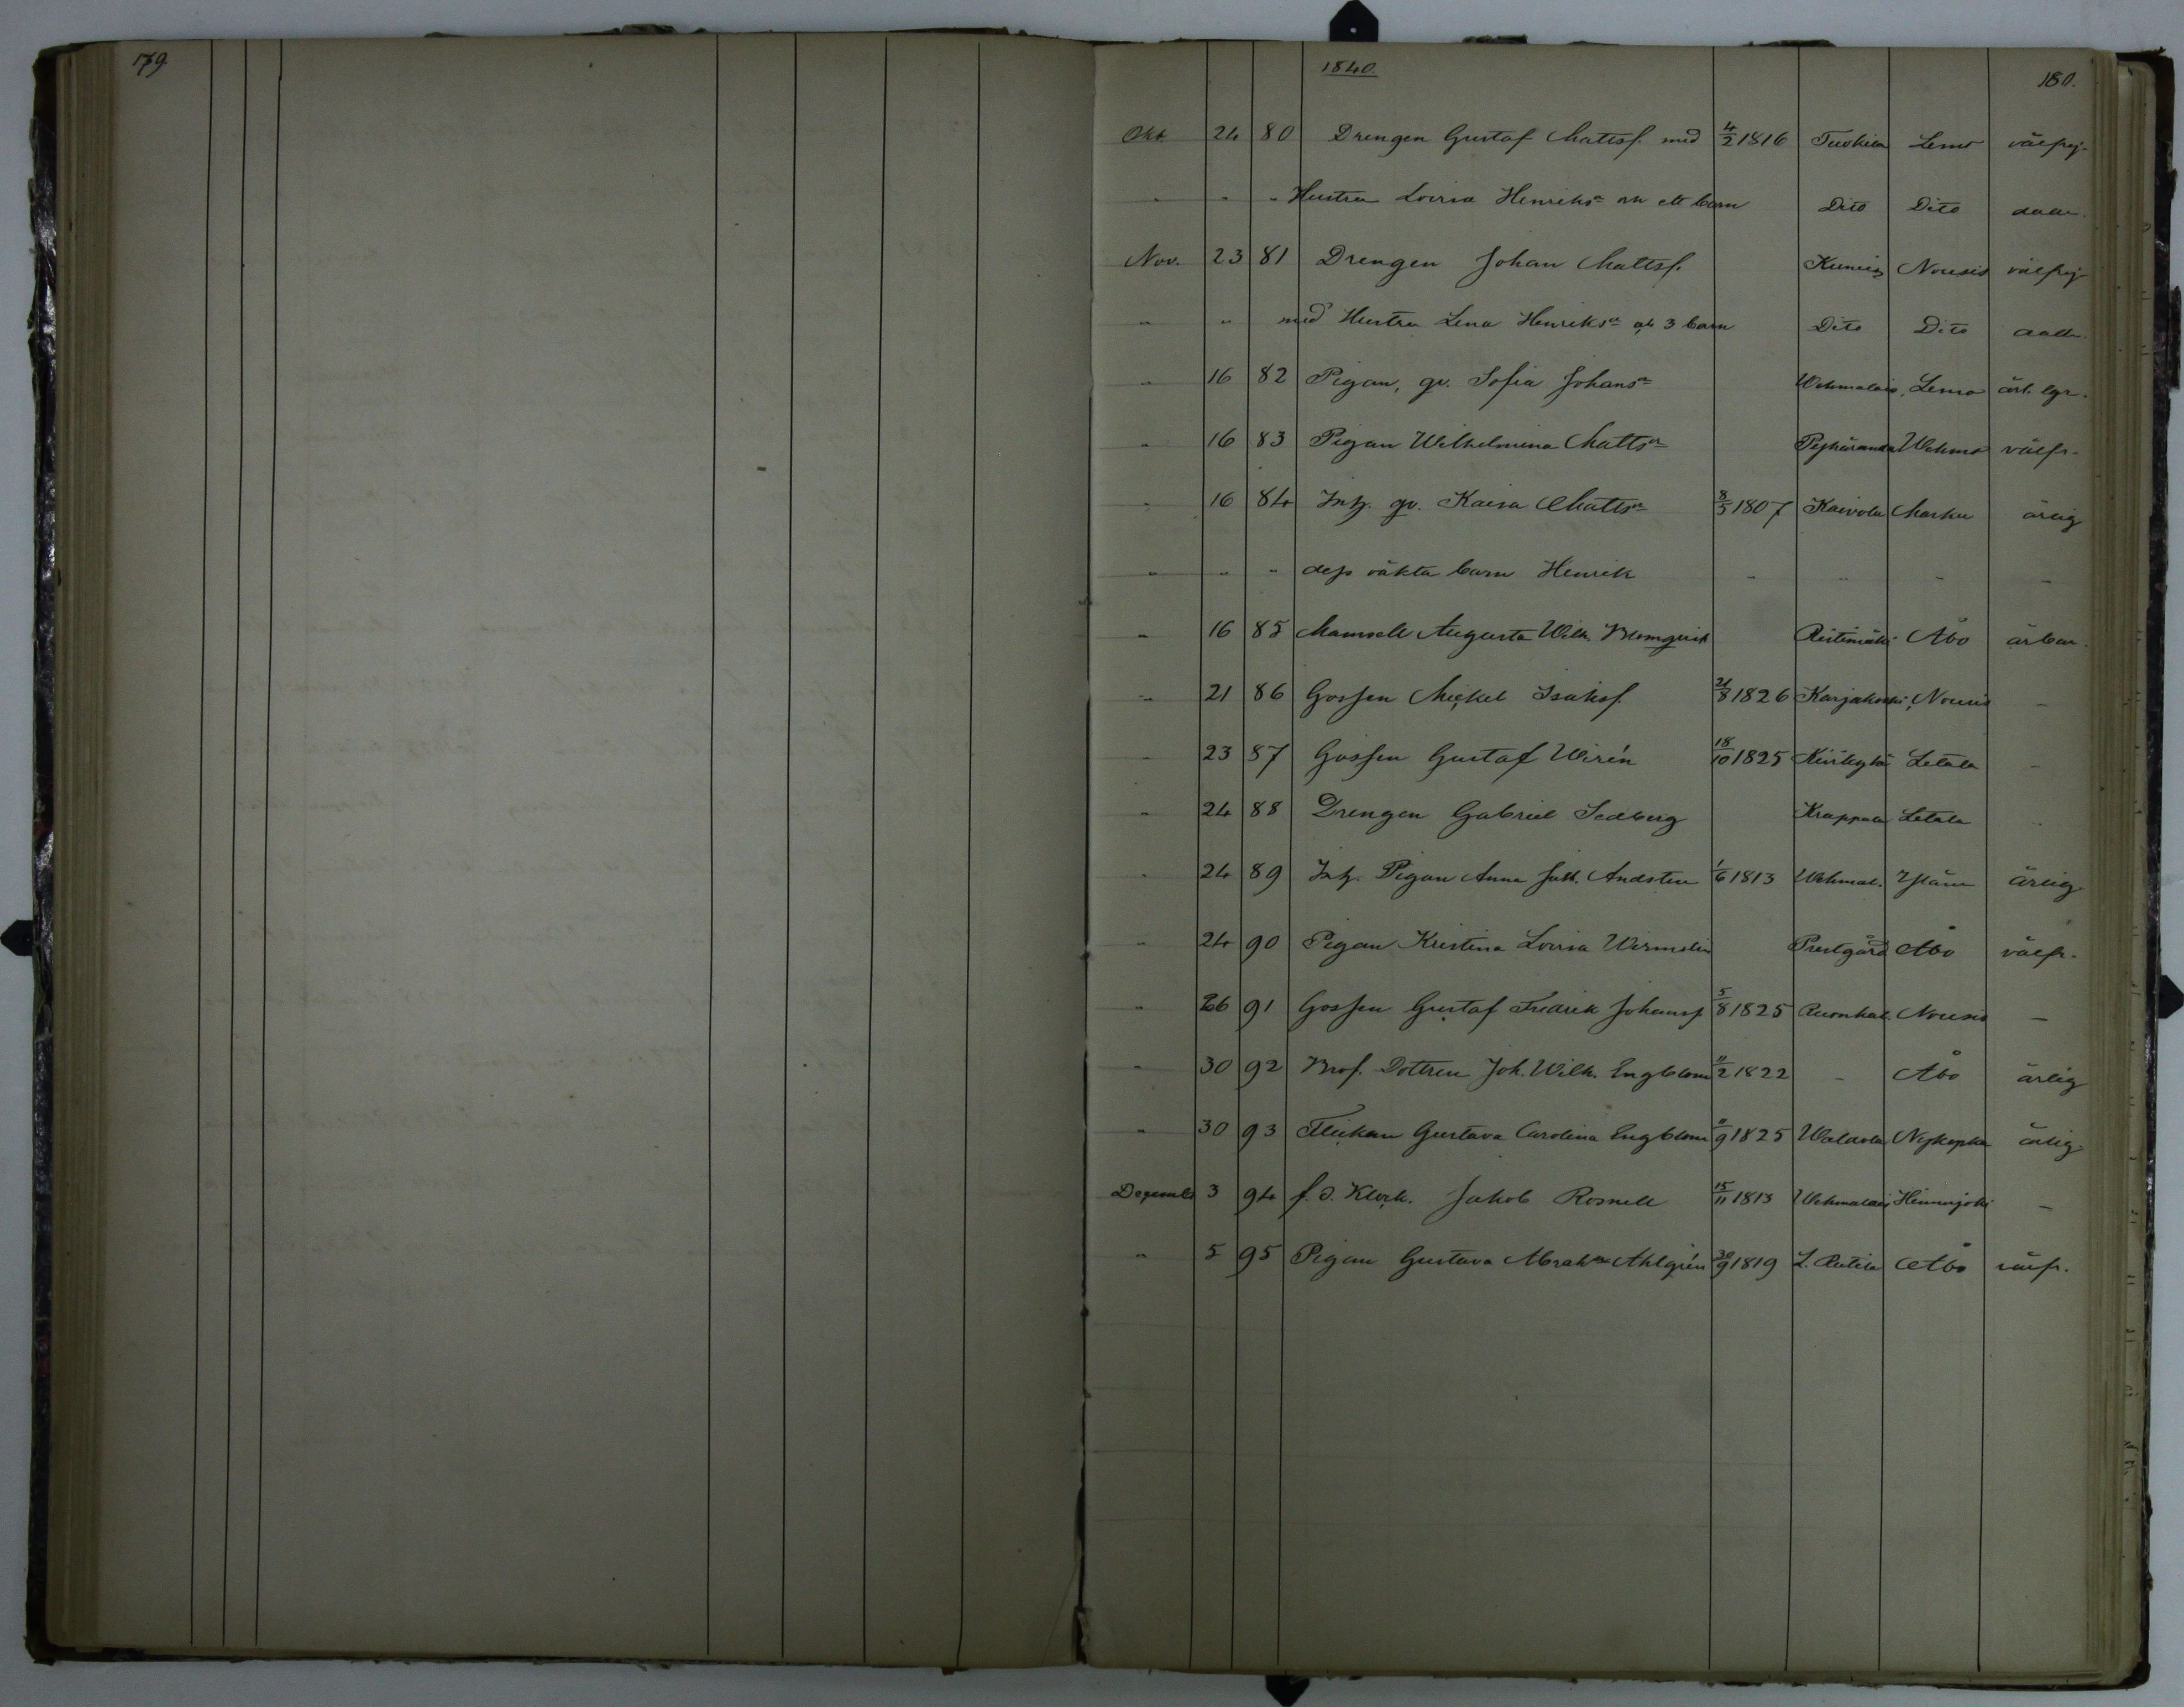 179
1840.
180.
Okt. 24 80 Drengen Gustaf Mattsf. med 4/2 1816 Tuokila Lemo välfrej.
" " " Hustru Lovisa Henriksa och ett barn Dito Dito
Nov. 23 81 Drengen Johan Mattsf. Nousis välfrej
" " med Hustru Lena Henriksa och 3 barn Dito Dito
" 16 82 Pigan, gv. Sofia Johansa Wehmalais, Lemo ärb. lgr.
" 16 83 Pigan Wilhelmina Mattsa Wehmo välfr.
" 16 84 Inh. gv. Kaisa Mattsa 8/5 1807 Kaivola Masku ärlig
" " " dess oäkta barn Henrik " " " "
" 16 85 Mamsell Augusta Wilh. Blomqvist Ristimäki Åbo ärbar.
" 21 86 Gossen Mickel Isaksf. 21/8 1826 Karjakoski, Nousis —
" 23 87 Gossen Gustaf Wirén 18/10 1825 Letala —
" 24 88 Drengen Gabriel Sedberg Krappala Letala
" 24 89 Inh. Pigan Anna Andsten 1/6 1813 Wehmal. ärlig
" 24 90 Pigan Kristina Lovisa Prestgård Åbo välfr.
" 26 91 Gossen Gustaf Fredrik Johansf. 5/8 1825 Nousis —
" 30 92 Dottren Joh. Wilh. Engblom 11/2 1822 — Åbo ärlig
" 30 93 Flickan Gustava Carolina Engblom 11/9 1825 Nykyrka ärlig
Decemb. 3 94 f. d. Klock. Jakob Rosnell 15/11 1813 Wehmalais Hinnerjoki —
" 5 95 Pigan Gustava Abrahsa Ahlgrén 30/9 1819 Åbo välfr.